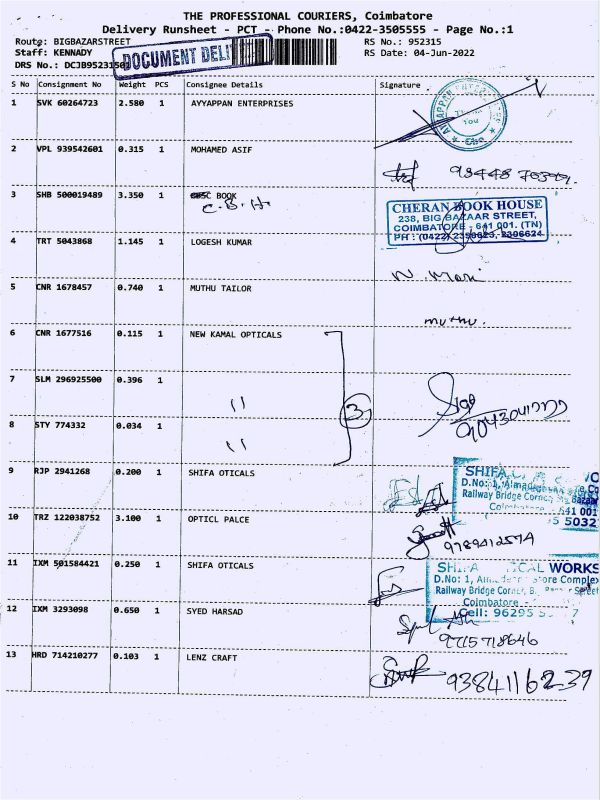 THE PROFESSIONAL COURIERS, Coimbatore
Delivery Runsheet - PCT - Phone No.:0422-3505555 - Page No.:1
Route: BIGBAZARSTREET RS No.: 952315
Staff: KENNADY RS Date: 04-Jun-2022
DOCUMENT DELI
DRS No.: DCJB952315
S No Consignment No Weight PCS Consignee Details Signature
1 SVK 60264723 2.580 1 AYYAPPAN ENTERPRISES
2 VPL 939542601 0.315 1 MOHAMED ASIF
3 SHB 500019489 3.350 1 BOOK
C. B. H
CHERAN BOOK HOUSE
238, BIG BAZAAR STREET,
COIMBATORE - 641 001. (TN)
PH : (0422) 2396623, 2306624
4 TRT 5043868 1.145 1 LOGESH KUMAR
N. Mani
5 CNR 1678457 0.740 1 MUTHU TAILOR
muthu.
6 CNR 1677516 0.115 1 NEW KAMAL OPTICALS
7 SLM 296925500 0.396 1 "
3
8 STY 774332 0.034 1 "
9 RJP 2941268 0.200 1 SHIFA OTICALS
SHIFA
D.No: 1,
Railway Bridge Corner,
10 TRZ 122038752 3.100 1 OPTICL PALCE
9789412574
11 IXM 501584421 0.250 1 SHIFA OTICALS
WORKS
D.No: 1, Store Complex
Railway Bridge Corner, Street
Coimbatore
Cell: 96295
12 IXM 3293098 0.650 1 SYED HARSAD
9715718646
13 HRD 714210277 0.103 1 LENZ CRAFT
9384116239